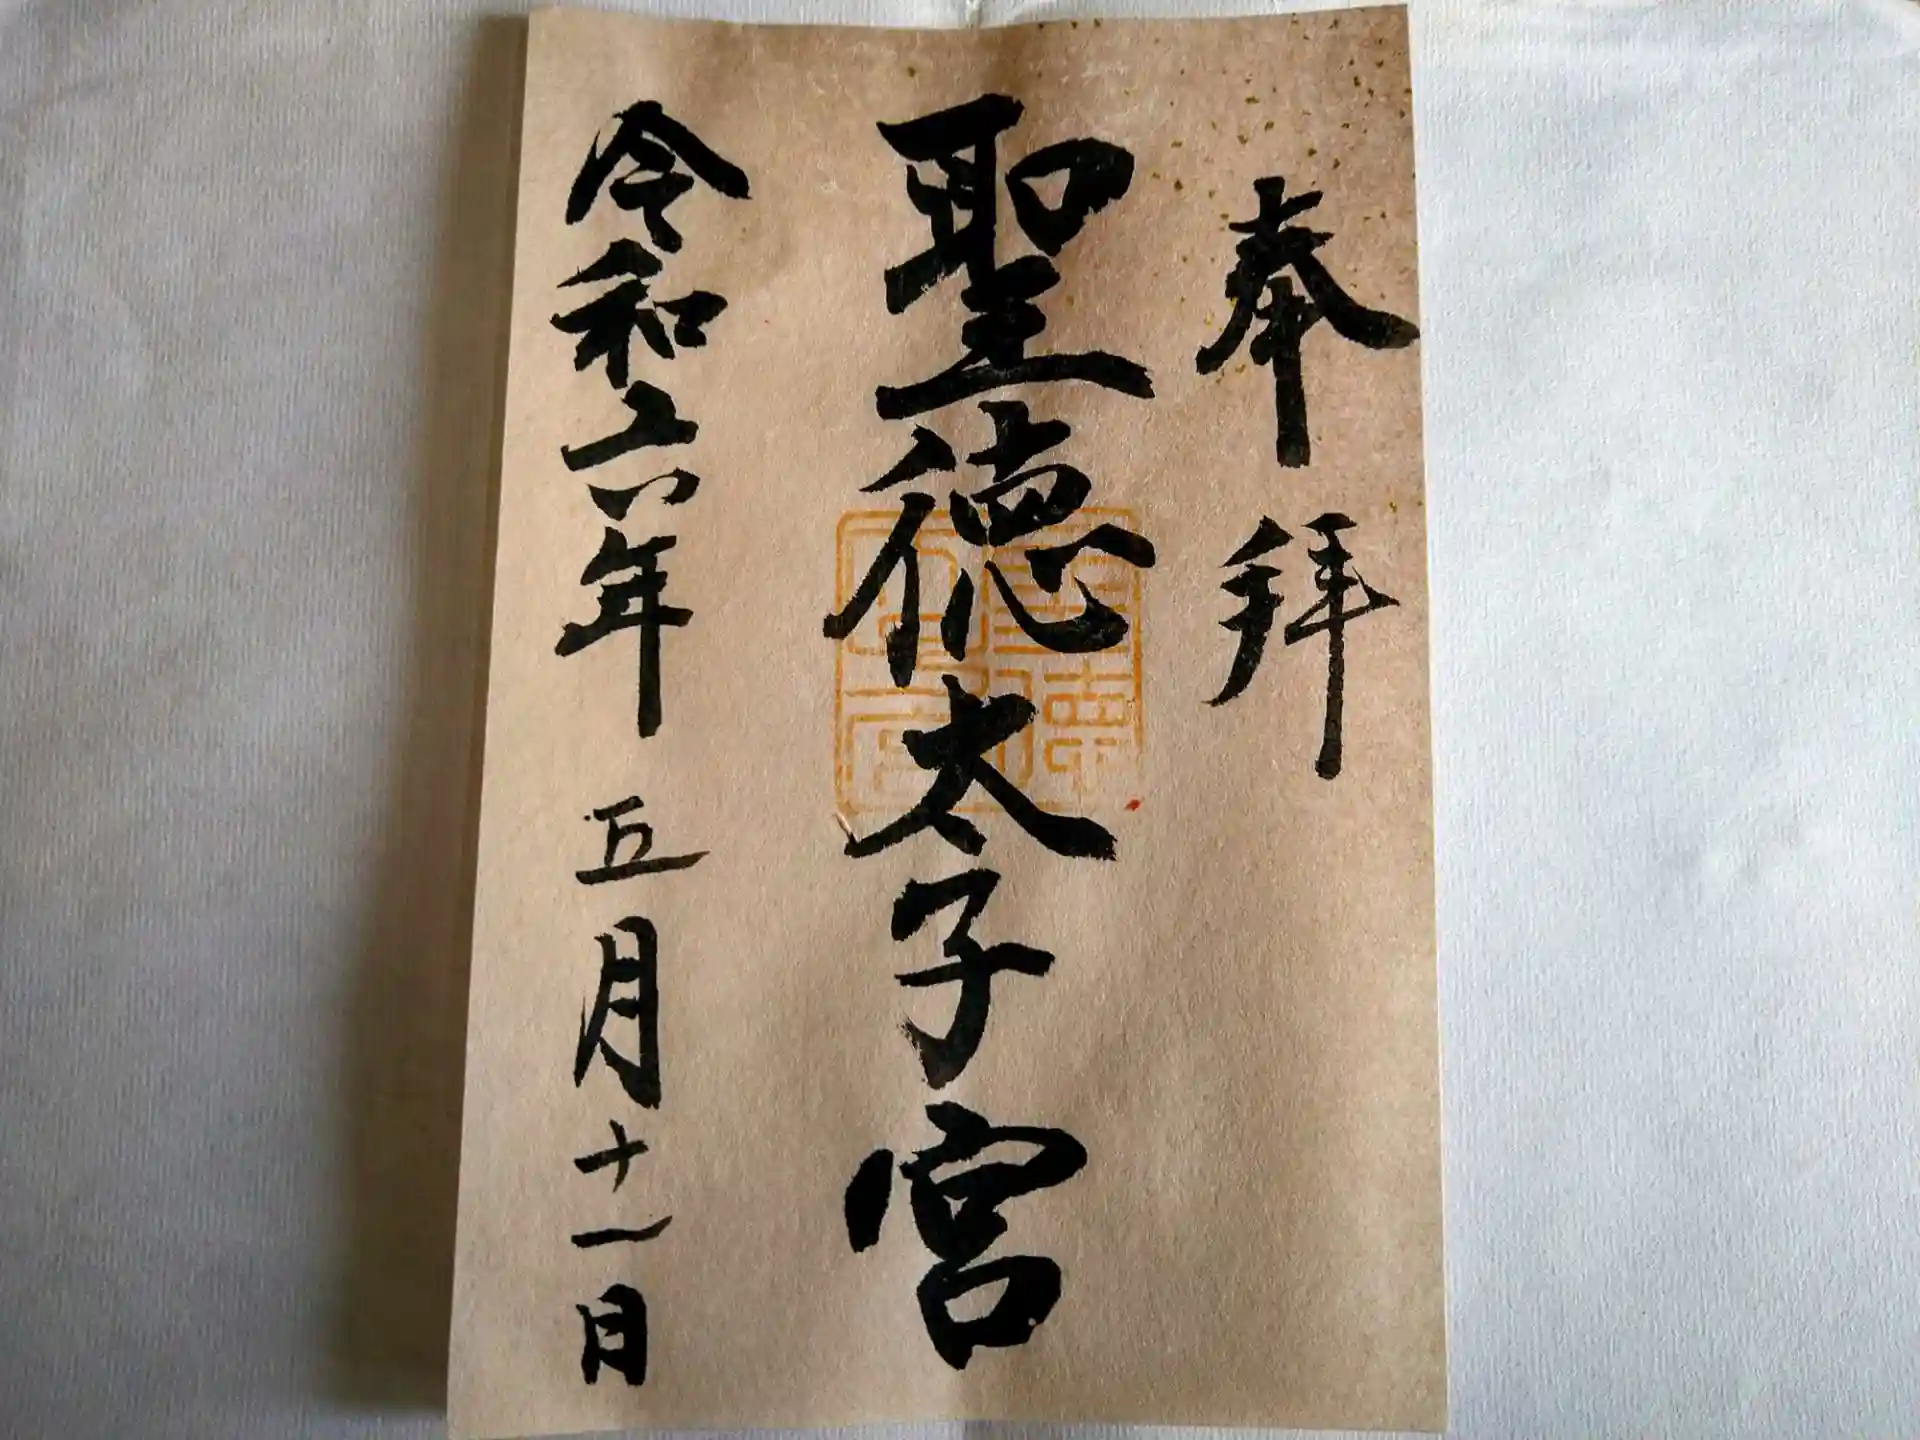 奉拝
聖徳太子宮
令和六年 五月十一日